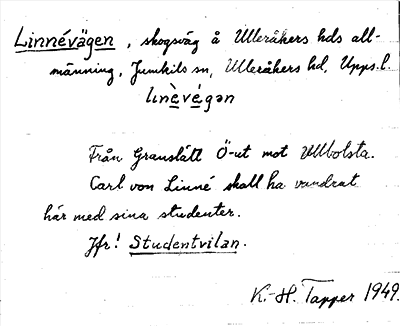 Linnévägen, skogsväg å Ulleråkers hds all-
männing, Jumkils sn, Ulleråkers hd, Upps. l.
linèvégən
Från Granslätt Ö-ut mot Ullbolsta.
Carl von Linné skall ha vandrat
här med sina studenter.
Jfr! Studentvilan.
K.-H. Tapper 1949.